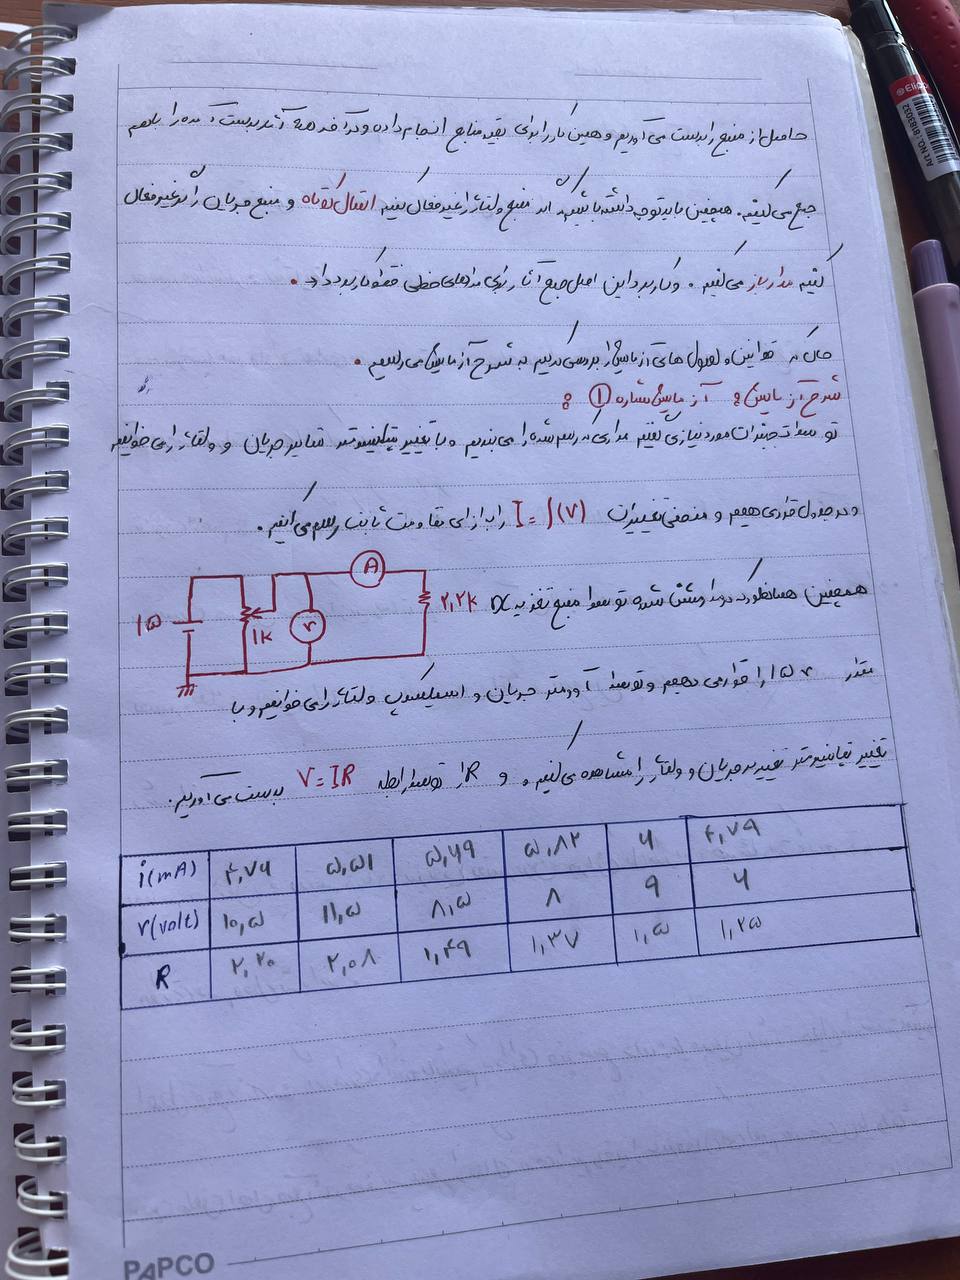 حاصل از منبع را بدست می آوریم و همین کار را برای بقیه منابع انجام داده و در آخر همه آثار بدست آمده را باهم
جمع می کنیم. همچنین باید توجه داشته باشیم که اگر منبع ولتاژ را غیر فعال کنیم اتصال کوتاه و منبع جریان را اگر غیر فعال
کنیم مدار باز می کنیم. و کاربرد این اصل جمع آثار برای مدارهای خطی فقط کاربرد دارد.
حال که قوانین و فرمول های آزمایش را بررسی کردیم به شرح آزمایش می رسیم.
شرح آزمایش: آزمایش شماره ①:
توسط تجهیزات مورد نیازی که گفتیم مداری که رسم شده را می بندیم و با تغییر پتانسیومتر مقادیر جریان و ولتاژ را می خوانیم
و در جدول قرار می دهیم و منحنی تغییرات I = f(V) را به ازای مقاومت ثابت رسم می کنیم.
A
همچنین همانطور که در مدار مشخص شده توسط منبع تغذیه DC
2,2K
15
1K
V
مقدار 15V را قرار می دهیم و توسط آوومتر جریان و اسیلسکوپ ولتاژ را می خوانیم و با
تغییر پتانسیومتر تغییر در جریان و ولتاژ را مشاهده می کنیم. و R را توسط رابطه V = IR بدست می آوریم.
i(mA) ۴,۷۶ ۵,۵۱ ۵,۶۹ ۵,۸۲ ۶ ۴,۷۹
V(volt) ۱۰,۵ ۱۱,۵ ۸,۵ ۸ ۹ ۶
R ۲,۲۰ ۲,۰۸ ۱,۴۹ ۱,۳۷ ۱,۵ ۱,۲۵
PAPCO
Art.NO.: 8183032